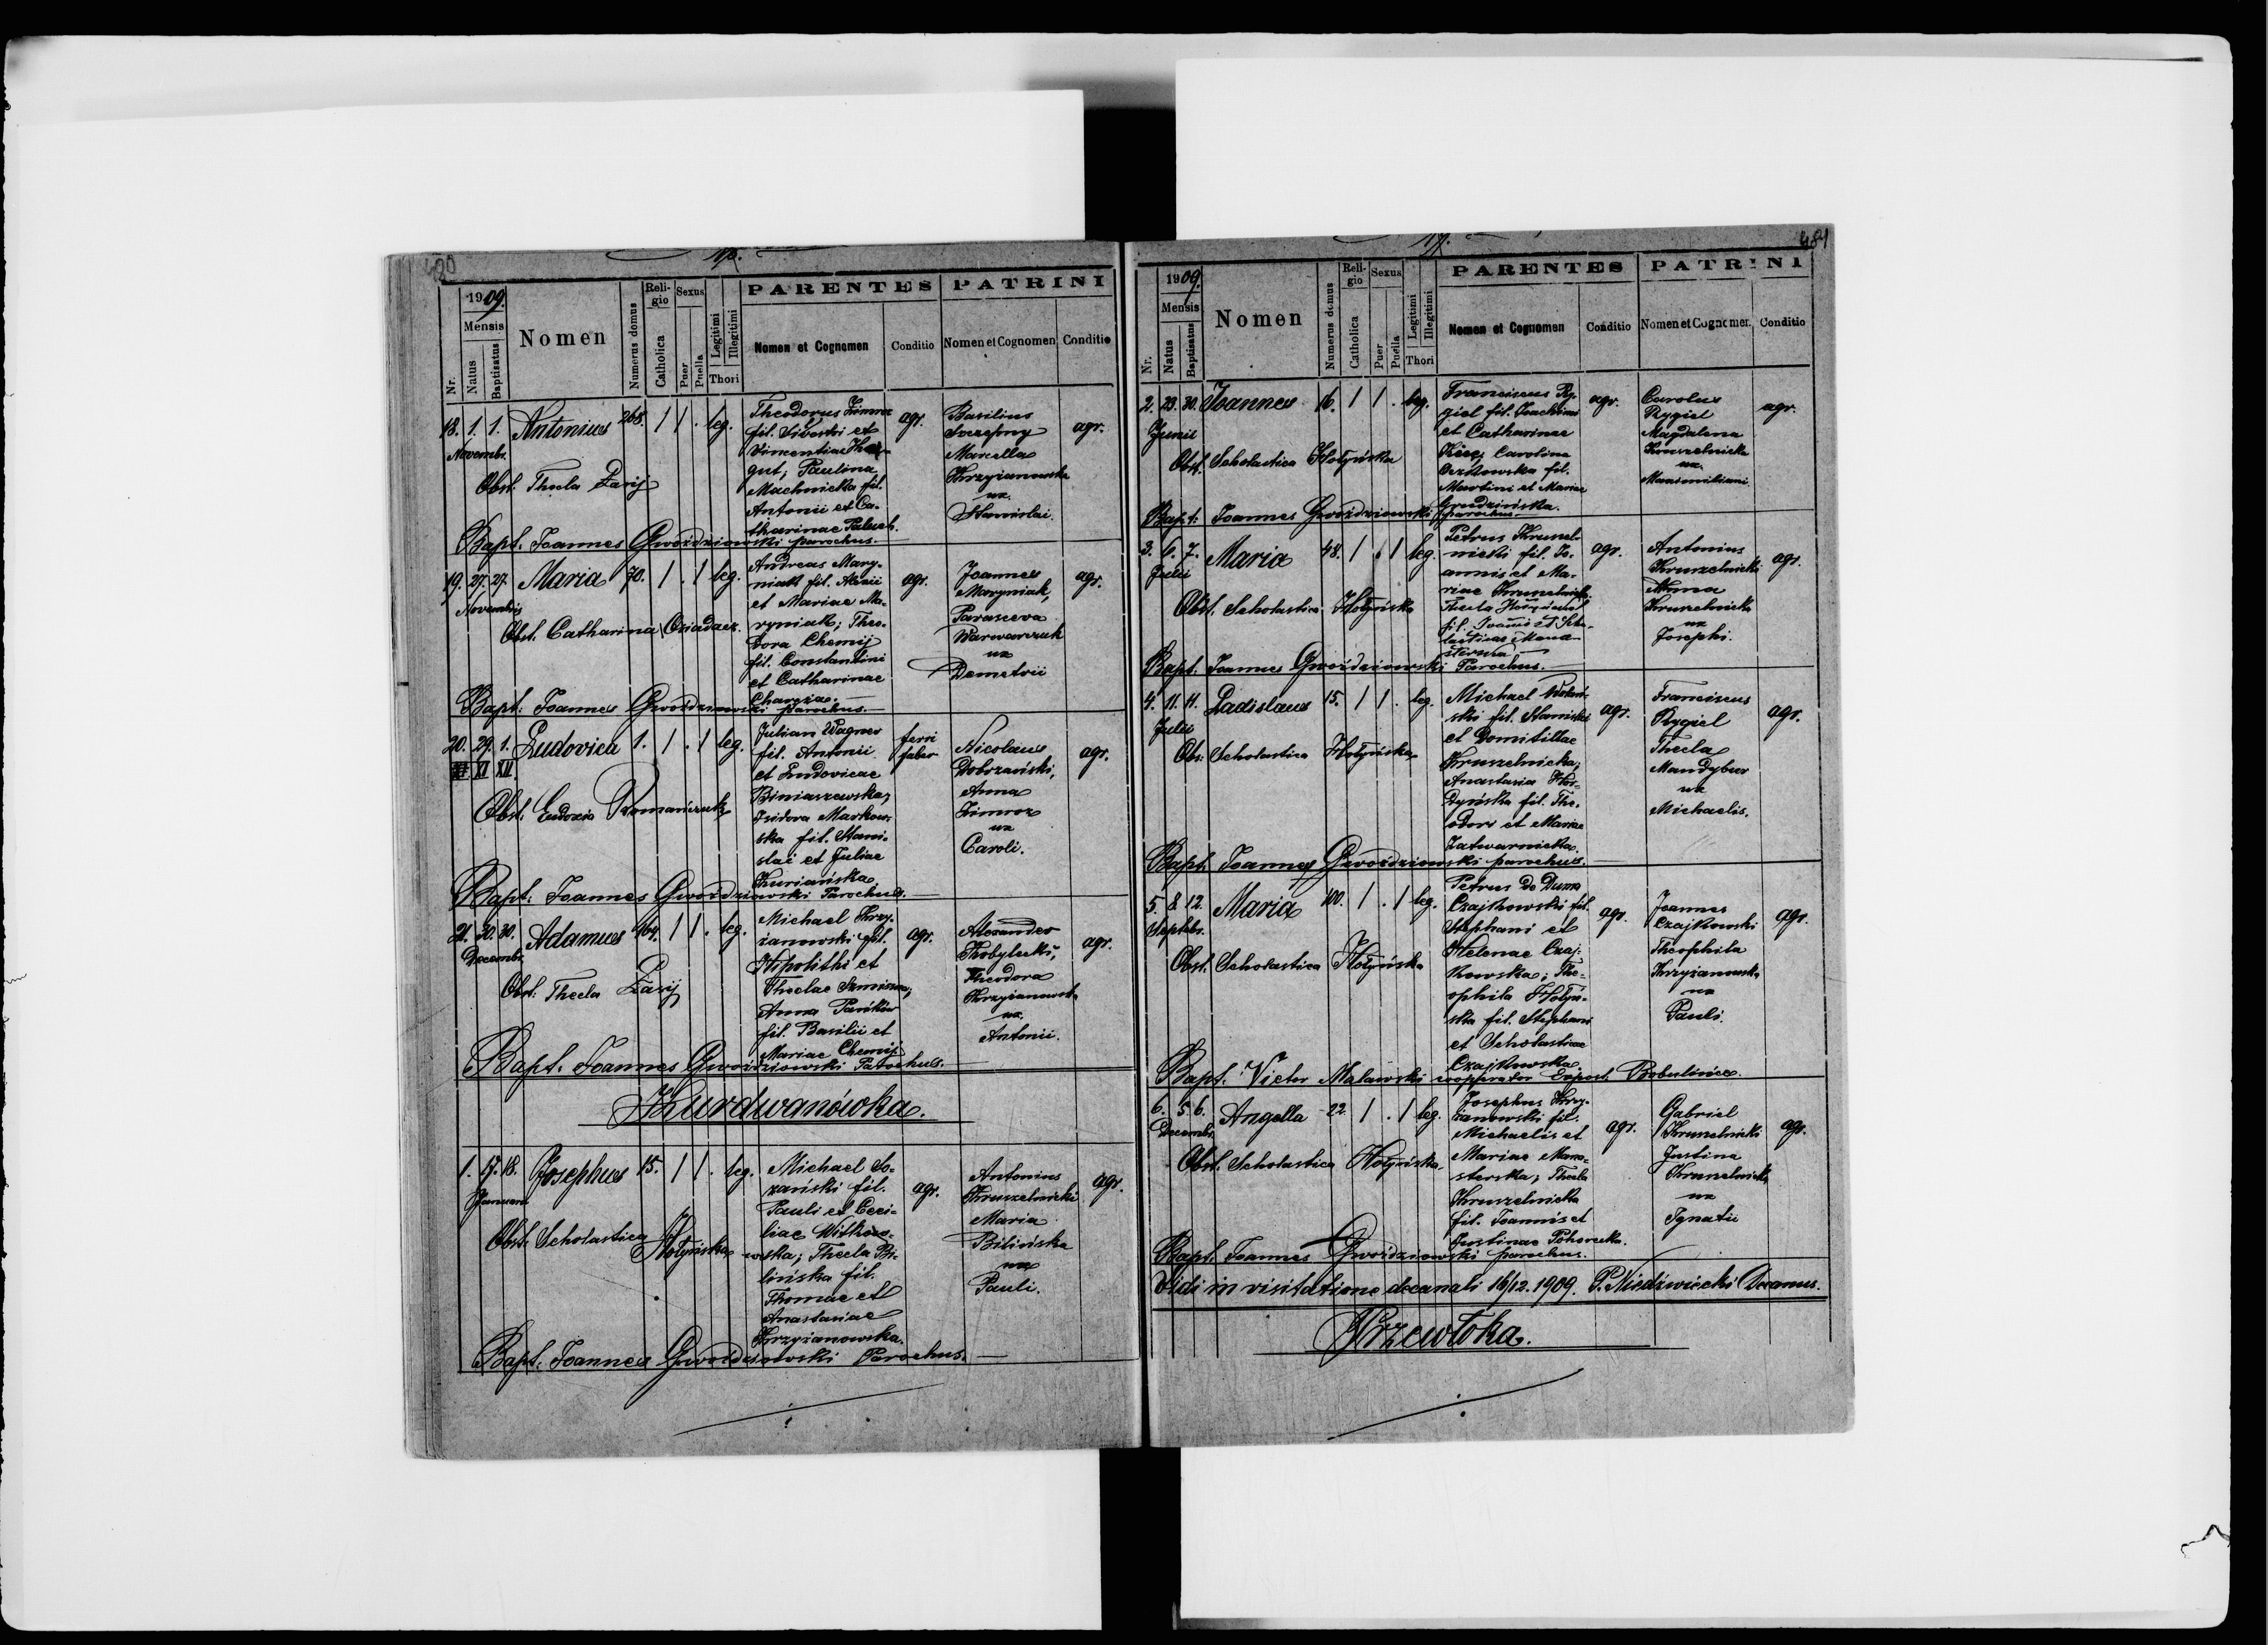 480
16.
1909.
Mensis
Nr.
Natus
Baptisatus
Nomen
Numerus domus
Religio
Catholica
Sexus
Puer
Puella
Legitimi
Illegitimi
Thori
PARENTES
Nomen et Cognomen
Conditio
PATRINI
Nomen et Cognomen
Conditio
18. 1. 1. Antonius 268. 1 1 . leg.
Novembr.
Obst. Thecla Zarij
Theodorus Zimroz
fil. Silvestri et
Vincentiae
gut; Paulina
Machnicka fil.
Antonii et Ca-
tharinae Paluch.
agr.
Basilius
Marcella
Krzyżanowska
ux.
Stanislai.
agr.
Bapt. Joannes Gwoździowski parochus.
19. 27. 27. Maria 70. 1 . 1 leg.
Novembris
Obst. Catharina Osiadacz.
Andreas Mary-
niak fil.
et Mariae Ma-
ryniak; Theo-
dora Chemij
fil. Constantini
et Catharinae
agr.
Joannes
Maryniak,
Parasceva
Warwarczuk
ux
Demetrii
agr.
Bapt. Joannes Gwoździowski parochus.
20. 29. 1. Ludovica 1. 1 . 1 leg.
XI XII
Obst. Eudoxia Romańczuk
Julian Wagner
fil. Antonii
et Ludovicae
Biniaszewska;
Isidora Markow-
ska fil. Stani-
slai et Juliae
Kuriańska
ferri
faber
Nicolaus
Dobrzański,
Anna
Zimroz
ux
Caroli.
agr.
Bapt. Joannes Gwoździowski Parochus.
21. 30. 30. Adamus 164. 1 1 . leg.
Decembr.
Obst: Thecla Zarij
Michael Krzy-
żanowski fil.
Hipolithi et
Theclae
Anna Pańków
fil. Basilii et
Mariae Chemij
agr.
Alexander
Kobylecki,
Theodora
Krzyżanowska
ux.
Antonii.
agr.
Bapt. Joannes Gwoździowski Parochus.
Kurdwanówka.
1. 17. 18. Josephus 15. 1 1 . leg.
Januarii
Obst: Scholastica Hołyńska
Michael So-
zański fil.
Pauli et Ceci-
liae Witkow-
ska; Thecla Bi-
lińska fil.
Thomae et
Anastasiae
Krzyżanowska.
agr.
Antonius
Kruszelnicki
Maria
Bilińska
ux
Pauli.
agr.
Bapt. Joannes Gwoździowski Parochus.
17.
481
1909.
Mensis
Nr.
Natus
Baptisatus
Nomen
Numerus domus
Religio
Catholica
Sexus
Puer
Puella
Legitimi
Illegitimi
Thori
PARENTES
Nomen et Cognomen
Conditio
PATRINI
Nomen et Cognomen
Conditio
2. 23. 30. Joannes 16. 1 1 . leg.
Junii
Obst. Scholastica Hołyńska
Franciscus Ry-
giel fil. Joachimi
et Catharinae
Carolina
fil.
Martini et Mariae
Grudzińska.
agr.
Carolus
Rygiel
Magdalena
Kruszelnicka
ux.
Maximiliani.
agr.
Bapt: Joannes Gwoździowski parochus
3. 6. 7. Maria 48. 1 . 1 leg.
Julii
Obst. Scholastica Hołyńska
Petrus Kruszel-
nicki fil. Jo-
annis et Ma-
riae Kruszelnicka;
Thecla
fil. Joannis et Scho-
lasticae Mana-
sterska
agr.
Antonius
Kruszelnicki
Anna
Kruszelnicka
ux
Josephi.
agr.
Bapt. Joannes Gwoździowski Parochus.
4. 11. 11. Ladislaus 15. 1 1 . leg.
Julii
Obs: Scholastica Hołyńska
Michael
ski fil. Stanislai
et Domitillae
Kruszelnicka;
Anastasia Hor-
dyńska fil. The-
odori et Mariae
Zatwarnicka.
agr.
Franciscus
Rygiel
Thecla
Mandybur
ux
Michaelis.
agr.
Bapt. Joannes Gwoździowski parochus.
5. 8. 12. Maria 100. 1 . 1 leg.
Septebr.
Obst. Scholastica Hołyńska
Petrus de Duma
Czajkowski fil.
Stephani et
Helenae Czaj-
kowska; The-
ophila Hołyń-
ska fil. Stephani
et Scholasticae
Czajkowska.
agr.
Joannes
Czajkowski
Theophila
Krzyżanowska
ux
Pauli.
agr.
Bapt. Victor Malawski cooperator Expost. Bobulińce.
6. 5. 6. Angella 22. 1 . 1 leg.
Decembr.
Obst. Scholastica Hołyńska.
Josephus Krzy-
żanowski fil.
Michaelis et
Mariae Mana-
sterska; Thecla
Kruszelnicka
fil. Joannis et
Justinae Pohorecka.
agr.
Gabriel
Kruszelnicki
Justina
Kruszelnicka
ux
Ignatii
agr.
Bapt. Joannes Gwoździowski parochus.
Vidi in visitatione decanali 16/12. 1909. P. Niedźwiecki Decanus.
Przewłoka.